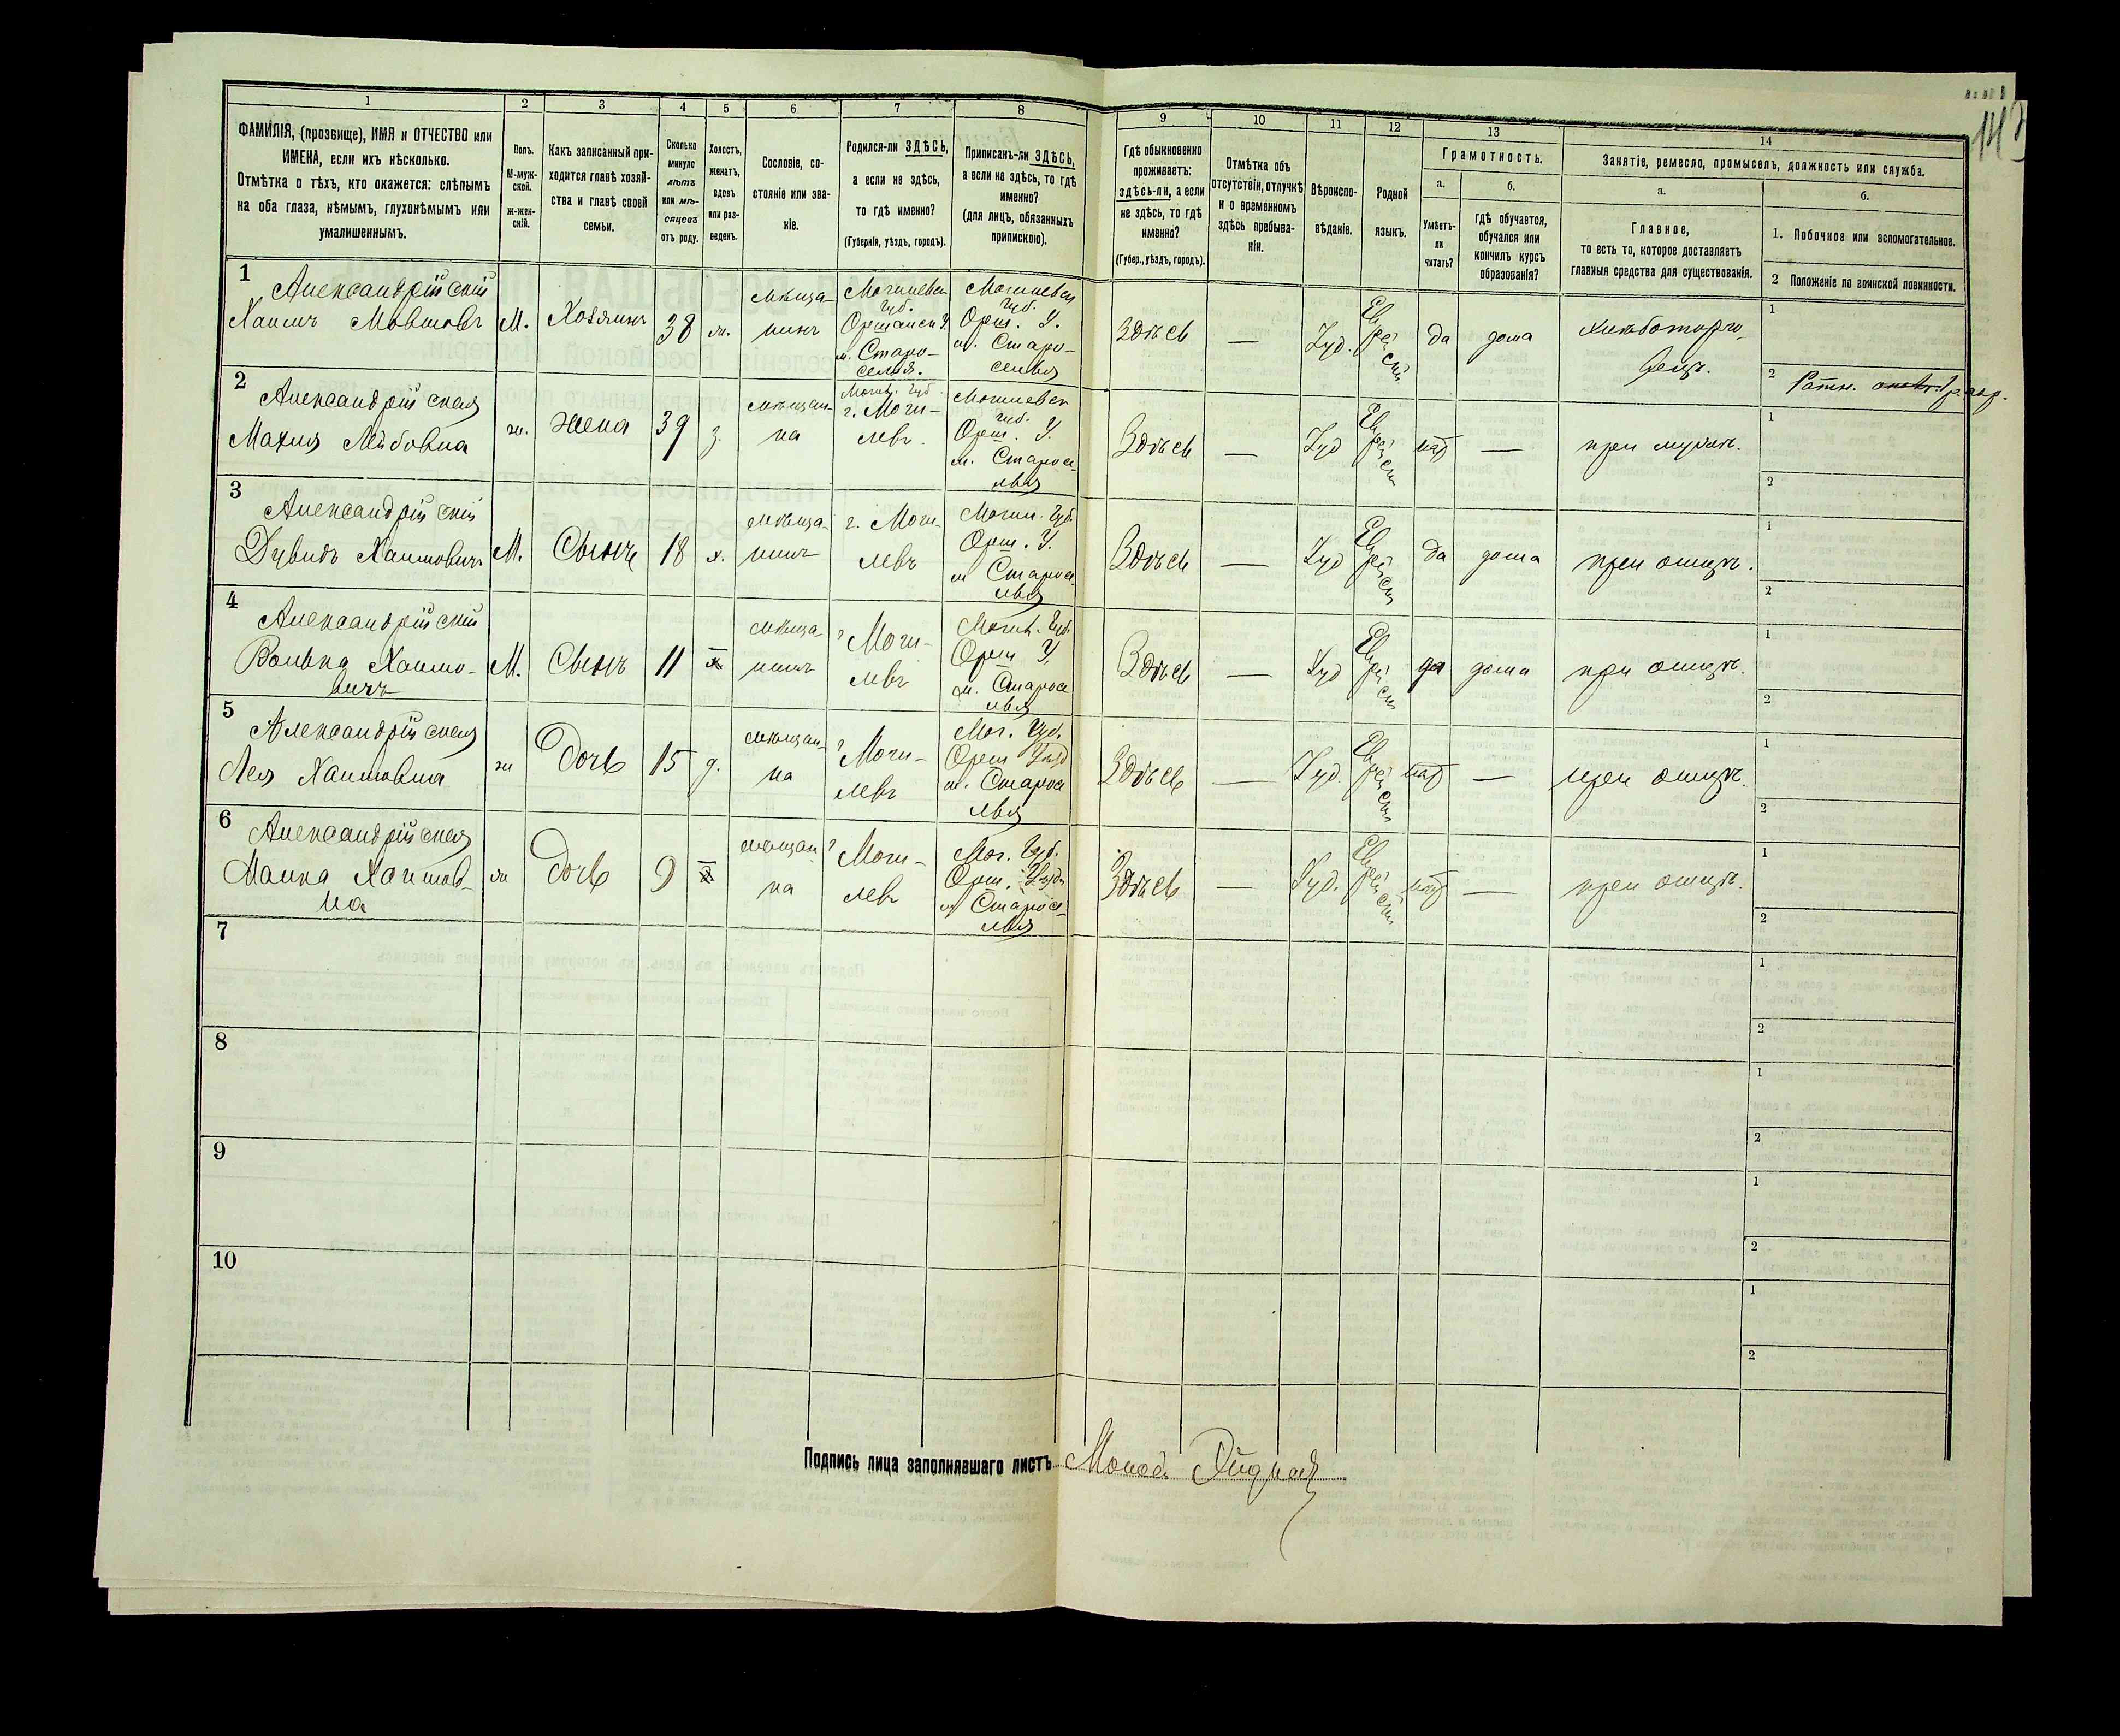 1
2
3
4
5
6
7
8
9
10
11
12
13
14
ФАМИЛІЯ, (прозвище), ИМЯ и ОТЧЕСТВО или
ИМЕНА, если ихъ нѣсколько.
Отмѣтка о тѣхъ, кто окажется: слѣпымъ
на оба глаза, нѣмымъ, глухонѣмымъ или
умалишеннымъ.
Полъ.
М-муж-
ской.
Ж-жен-
скій.
Какъ записанный при-
ходится главѣ хозяй-
ства и главѣ своей
семьи.
Сколько
минуло
лѣтъ
или мѣ-
сяцевъ
отъ роду.
Холостъ,
женатъ,
вдовъ
или раз-
веденъ.
Сословіе, со-
стояніе или зва-
ніе.
Родился-ли ЗДѢСЬ,
а если не здѣсь,
то гдѣ именно?
(Губернія, уѣздъ, городъ).
Приписанъ-ли ЗДѢСЬ,
а если не здѣсь, то гдѣ
именно?
(для лицъ, обязанныхъ
припискою).
Гдѣ обыкновенно
проживаетъ:
здѣсь-ли, а если
не здѣсь, то гдѣ
именно?
(Губер., уѣздъ, городъ).
Отмѣтка объ
отсутствіи, отлучкѣ
и о временномъ
здѣсь пребыва-
ніи.
Вѣроиспо-
вѣданіе.
Родной
языкъ.
Грамотность.
а.
Умѣетъ-
ли
читать?
б.
гдѣ обучается,
обучался или
кончилъ курсъ
образованія?
Занятіе, ремесло, промыселъ, должность или служба.
а.
Главное,
то есть то, которое доставляетъ
главныя средства для существованія.
б.
1. Побочное или вспомогательное.
2 Положеніе по воинской повинности.
1
Александрійскій
Хаимъ Мовшовъ
М.
Хозяинъ
38
ж.
мѣща-
нинъ
Могилевск
Губ.
Оршанск У.
м. Старо-
селья.
Могилевск
Губ.
Орш. У.
м. Старо-
селья
Здѣсь
—
Іуд.
Еврейскій
да
дома
хлѣботорго-
вецъ.
1
2 Ратн.
2
Александрійская
Махля Лейбовна
ж.
жена
39
з.
мѣщан-
ка
Могил. Губ
г. Моги-
левъ.
Могилевск
губ.
Орш. У.
м. Старосе
лья
Здѣсь
—
Іуд
Еврейскій
нѣт
—
при мужѣ.
1
2
3
Александрійскій
Дувидъ Хаимовичъ
М.
Сынъ
18
х.
мѣща-
нинъ
г. Моги-
левъ
Могил. Губ.
Орш. У.
м Старосе
лья
Здѣсь
—
Іуд
Еврейскій
да
дома
при отцѣ.
1
2
4
Александрійскій
Волька Хаимо-
вичъ
М.
Сынъ
11
мѣща-
нинъ
г Моги-
левъ
Могил. Губ.
Орш У.
м. Старосе
лья
Здѣсь
—
Іуд
Еврейскій
да
дома
при отцѣ.
1
2
5
Александрійская
Лея Хаимовна
ж
Дочь
15
д.
мѣщан-
ка
г Моги-
левъ
Мог. Губ.
Орш Уѣзд
м. Старосе
лья
Здѣсь
—
Іуд.
Еврейскій
нѣт
—
при отцѣ.
1
2
6
Александрійская
Маика Хаимов-
на
ж
Дочь
9
мѣщан
ка
г Моги-
левъ
Мог. Губ.
Орш. Уѣзд
м Старосе-
лья
Здѣсь
—
Іуд.
Еврейскій
нѣт
—
при отцѣ.
1
2
7
1
2
8
1
2
9
1
2
10
1
2
Подпись лица заполнявшаго листъ